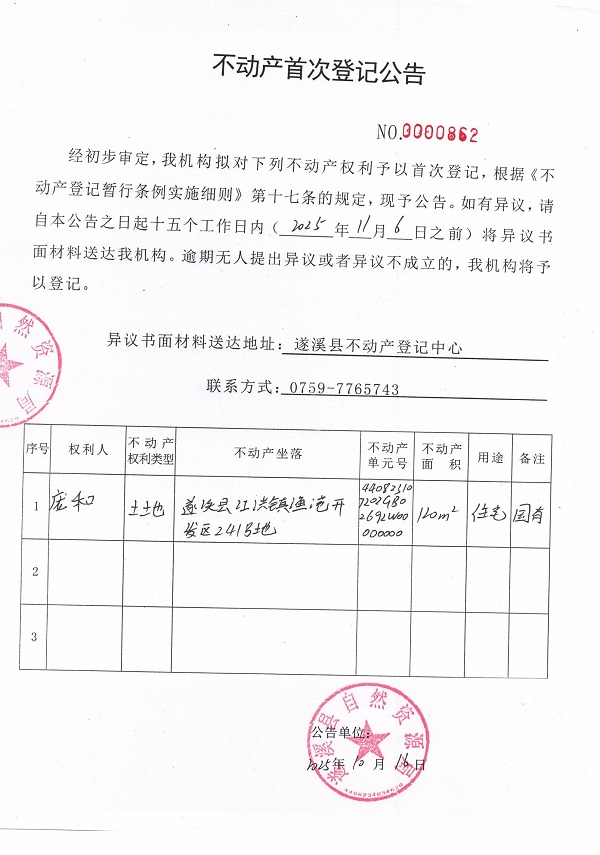 不动产首次登记公告
NO.0000862
经初步审定，我机构拟对下列不动产权利予以首次登记，根据《不
动产登记暂行条例实施细则》第十七条的规定，现予公告。如有异议，请
自本公告之日起十五个工作日内（2025年11月6日之前）将异议书
面材料送达我机构。逾期无人提出异议或者异议不成立的，我机构将予
以登记。
异议书面材料送达地址：遂溪县不动产登记中心
联系方式：0759-7765743
序号 权利人 不动产权利类型 不动产坐落 不动产单元号 不动产面积 用途 备注
1 庞和 土地 遂溪县江洪镇渔港开发区241号地 440823107202GB02692W00000000 120m² 住宅 国有
2
3
公告单位：
2025年10月16日
遂溪县自然资源局
自然资源局